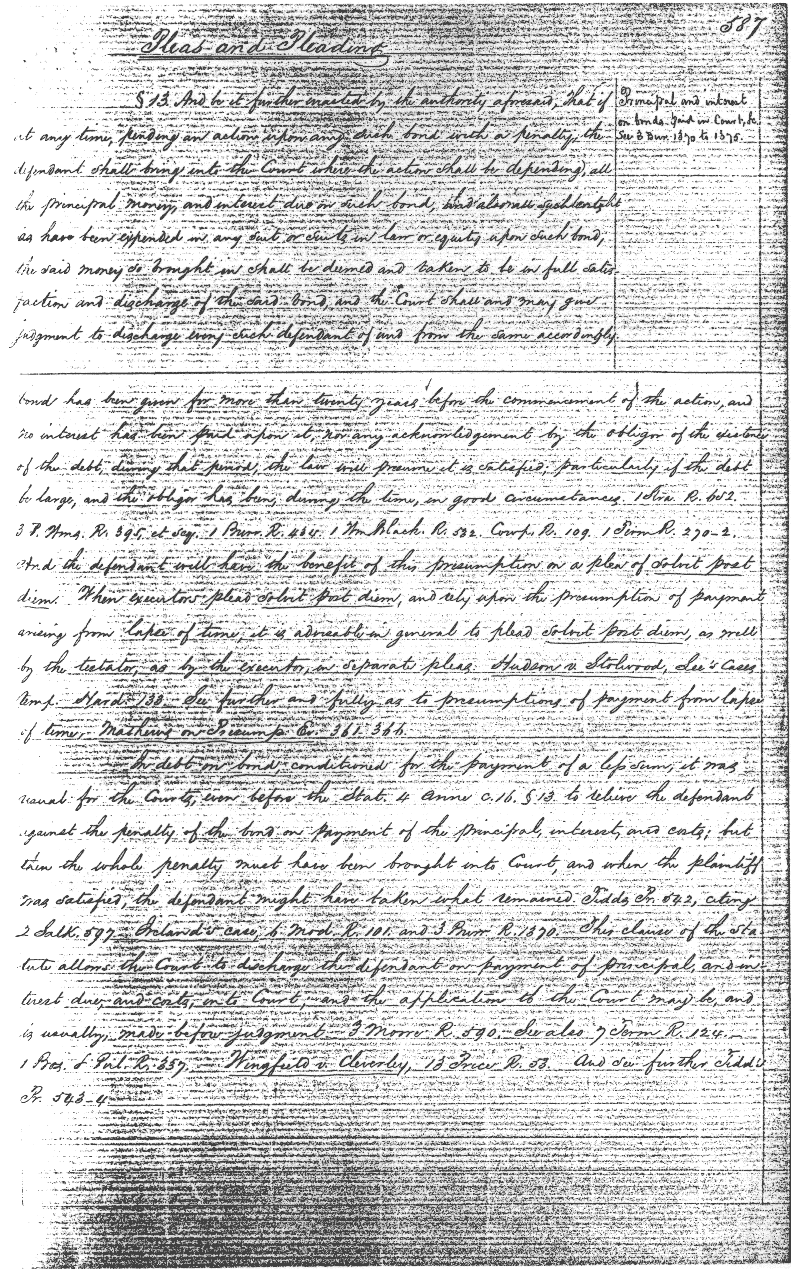 587
Pleas and Pleading
§ 13. And be it further enacted by the authority aforesaid, that if
at any time, pending an action upon any such bond with a penalty, the
defendant shall bring into the Court where the action shall be depending, all
the principal money, and interest due on such bond, and also all such costs
as have been expended in any suit or suits in law or equity upon such bond,
the said money so brought in shall be deemed and taken to be in full satis-
faction and discharge of the said bond, and the Court shall and may give
judgment to discharge every such defendant of and from the same accordingly.
Principal and interest
on bonds paid in Court, &c.
See 3 Burr. 1370 to 1375.
bond has been given for more than twenty years before the commencement of the action, and
no interest has been paid upon it, nor any acknowledgement by the obligor of the existence
of the debt, during that period, the law will presume it is satisfied; particularly if the debt
be large, and the obligor has been, during the time, in good circumstances. 1 Stra. R. 652.
3 P. Wms. R. 395, et seq. 1 Burr. R. 434. 1 Wm. Black. R. 532. Cowp. R. 109. 1 Term R. 270-2.
And the defendant will have the benefit of this presumption on a plea of solvit post
diem. When executors plead solvit post diem, and rely upon the presumption of payment
arising from lapse of time, it is advisable in general to plead solvit post diem, as well
by the testator, as by the executor, in separate pleas. Hudson v. Stolwood, Lee's Cases
temp. Hard. 133. See further and fully as to presumptions of payment from lapse
of time, Mathews on Presump. Ev. 361. 366.
In debt on bond, conditioned for the payment of a less sum, it was
usual for the Courts, even before the Stat. 4 Anne c. 16. § 13. to relieve the defendant
against the penalty of the bond on payment of the principal, interest, and costs; but
then the whole penalty must have been brought into Court, and when the plaintiff
was satisfied, the defendant might have taken what remained. Tidds Pr. 542, citing
2 Salk. 597. Ireland's case, 6 Mod. R. 101. and 3 Burr. R. 1370. This clause of the Sta-
tute allows the Court to discharge the defendant on payment of principal, and in-
terest due, and costs, into Court; and the application to the Court may be, and
is usually, made before judgment. 3 Moore R. 590. See also 7 Term R. 124.
1 Bos. & Pul. R. 337. Wingfield v. Cleverley, 13 Price R. 53. And see further Tidd's
Pr. 543-4.